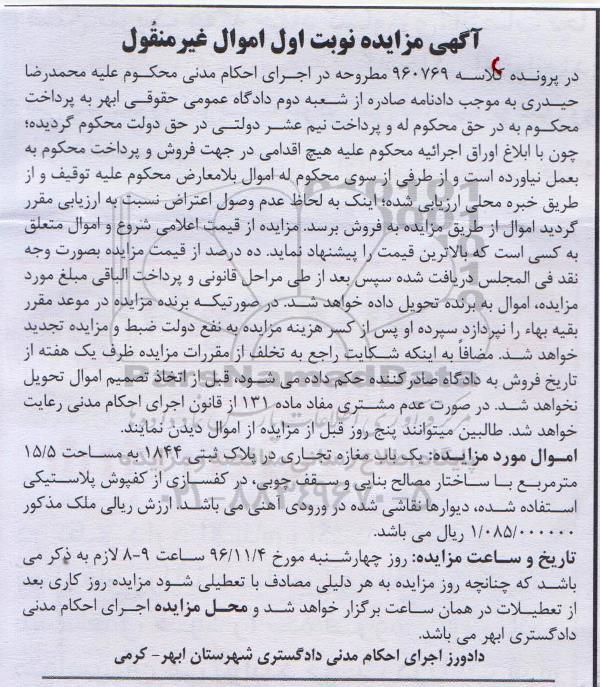 آگهی مزایده نوبت اول اموال غیرمنقُول
در پرونده کلاسه ۹۶۰۷۶۹ مطروحه در اجرای احکام مدنی محکوم علیه محمدرضا
حیدری به موجب دادنامه صادره از شعبه دوم دادگاه عمومی حقوقی ابهر به پرداخت
محکوم به در حق محکوم له و پرداخت نیم عشر دولتی در حق دولت محکوم گردیده؛
چون با ابلاغ اوراق اجرائیه محکوم علیه هیچ اقدامی در جهت فروش و پرداخت محکوم به
بعمل نیاورده است و از طرفی از سوی محکوم له اموال بلامعارض محکوم علیه توقیف و از
طریق خبره محلی ارزیابی شده؛ اینک به لحاظ عدم وصول اعتراض نسبت به ارزیابی مقرر
گردید اموال از طریق مزایده به فروش برسد. مزایده از قیمت اعلامی شروع و اموال متعلق
به کسی است که بالاترین قیمت را پیشنهاد نماید. ده درصد از قیمت مزایده بصورت وجه
نقد فی المجلس دریافت شده سپس بعد از طی مراحل قانونی و پرداخت الباقی مبلغ مورد
مزایده، اموال به برنده تحویل داده خواهد شد. در صورتیکه برنده مزایده در موعد مقرر
بقیه بهاء را نپردازد سپرده او پس از کسر هزینه مزایده به نفع دولت ضبط و مزایده تجدید
خواهد شد. مضافاً به اینکه شکایت راجع به تخلف از مقررات مزایده ظرف یک هفته از
تاریخ فروش به دادگاه صادرکننده حکم داده می شود، قبل از اتخاذ تصمیم اموال تحویل
نخواهد شد. در صورت عدم مشتری مفاد ماده ۱۳۱ از قانون اجرای احکام مدنی رعایت
خواهد شد. طالبین میتوانند پنج روز قبل از مزایده از اموال دیدن نمایند.
اموال مورد مزایده: یک باب مغازه تجاری در پلاک ثبتی ۱۸۴۴ به مساحت ۱۵/۵
مترمربع با ساختار مصالح بنایی و سقف چوبی، در کفسازی از کفپوش پلاستیکی
استفاده شده، دیوارها نقاشی شده در ورودی آهنی می باشد. ارزش ریالی ملک مذکور
۱/۰۸۵/۰۰۰۰۰۰ ریال می باشد.
تاریخ و ساعت مزایده: روز چهارشنبه مورخ ۹۶/۱۱/۴ ساعت ۹-۸ لازم به ذکر می
باشد که چنانچه روز مزایده به هر دلیلی مصادف با تعطیلی شود مزایده روز کاری بعد
از تعطیلات در همان ساعت برگزار خواهد شد و محل مزایده اجرای احکام مدنی
دادگستری ابهر می باشد.
دادورز اجرای احکام مدنی دادگستری شهرستان ابهر- کرمی
ParsNamadData
۰۲۱-۸۸۳۴۹۶۷۰-۵